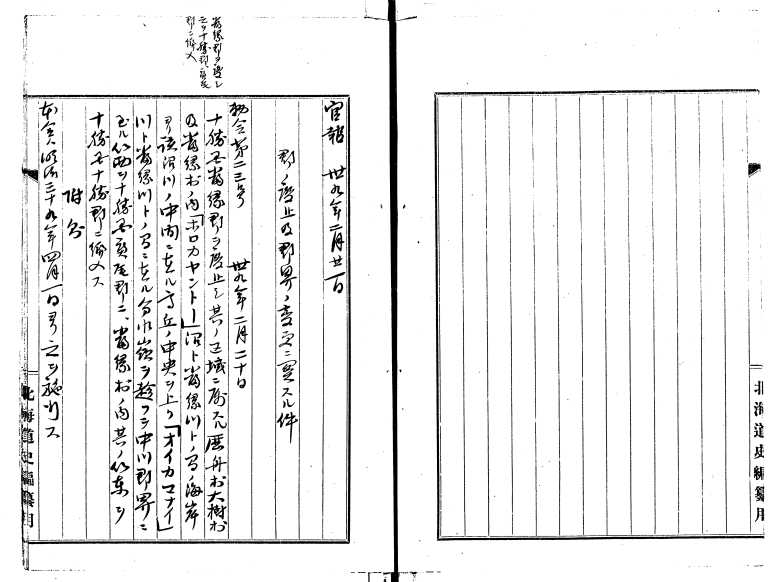 北海道史編纂用
官報 卅九年二月廿一日
郡ノ廃止及郡界ノ変更ニ関スル件
勅令第二三号 卅九年二月二十日
十勝国当縁郡ヲ廃止シ其ノ区域ニ属スル歴舟村大樹村
及当縁村ノ内「ホロカヤントー」沼ト当縁川トノ間ノ海岸
ヨリ該沼川ノ中間ニ在ル高丘ノ中央ヲ上リ「オイカマナイ」
川ト当縁川トノ間ニ在ル分水嶺ヲ越ヘシ中川郡界ニ
至ル以西ヲ十勝国広尾郡ニ、当縁村ノ内其ノ以東ヲ
十勝国十勝郡ニ編入ス
附則
本令ハ明治三十九年四月一日ヨリ之ヲ施行ス
当縁郡ヲ廃シ
之ヲ十勝郡、広尾
郡ニ編入
北海道史編纂用